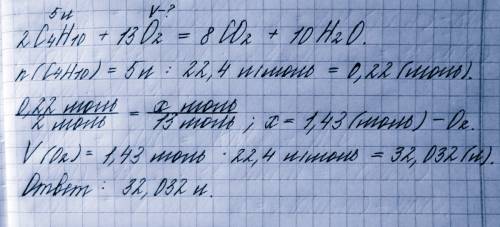 5л V-?
2C4H10 + 13O2 = 8CO2 + 10H2O.
n(C4H10) = 5л : 22,4 л/моль = 0,22 (моль).
0,22 моль / 2 моль = x моль / 13 моль ; x = 1,43 (моль) - O2.
V(O2) = 1,43 моль · 22,4 л/моль = 32,032 (л).
Ответ : 32,032 л.